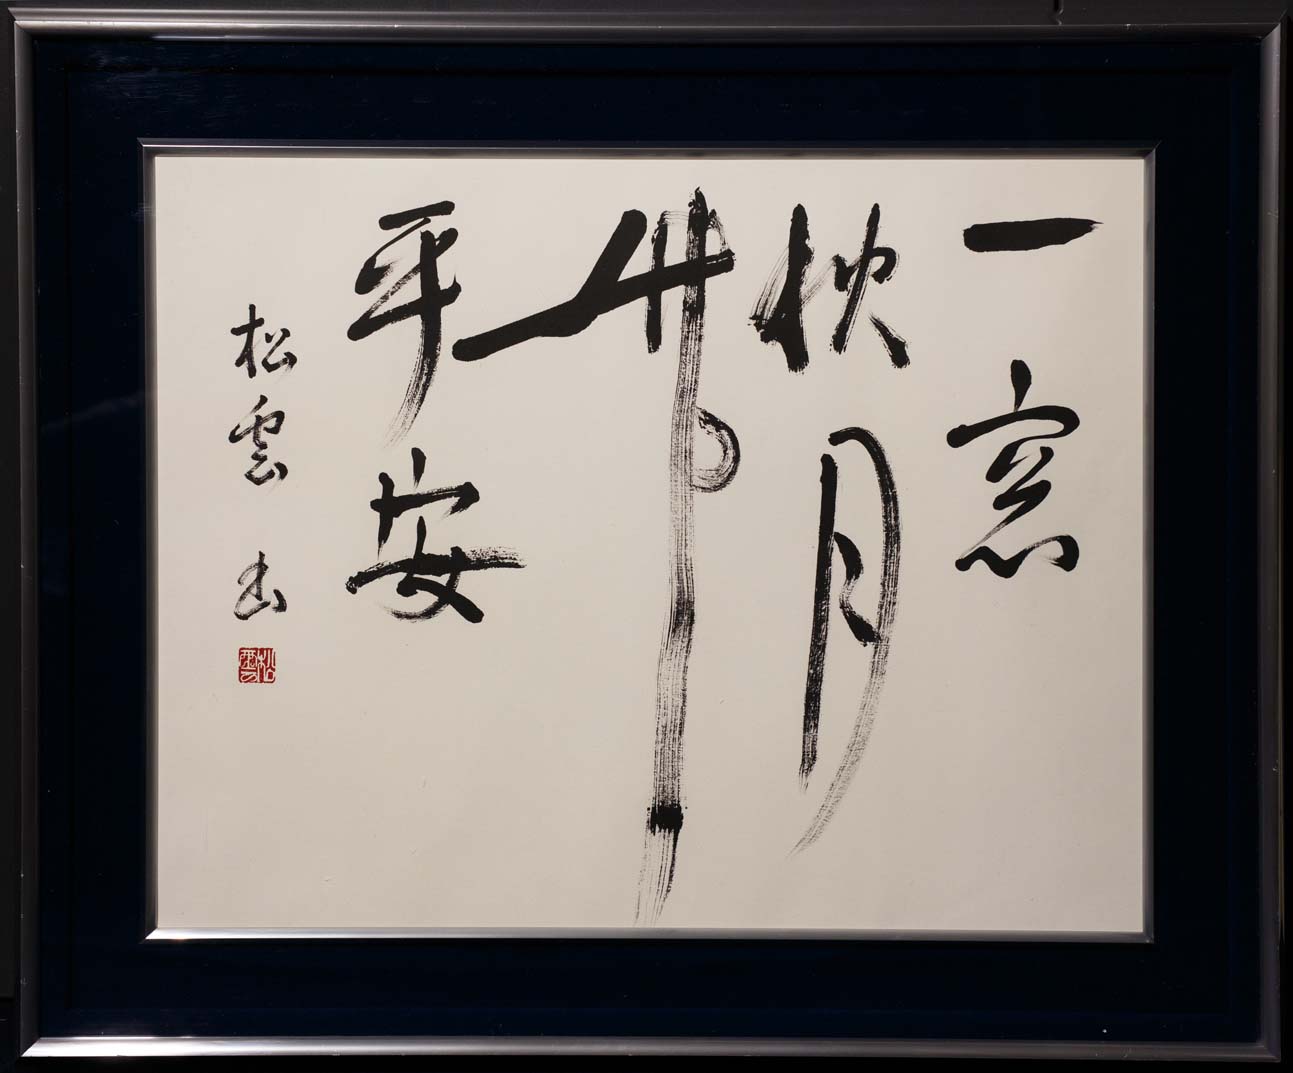 一窓
秋月
竹
平安
松雲 书
松雲